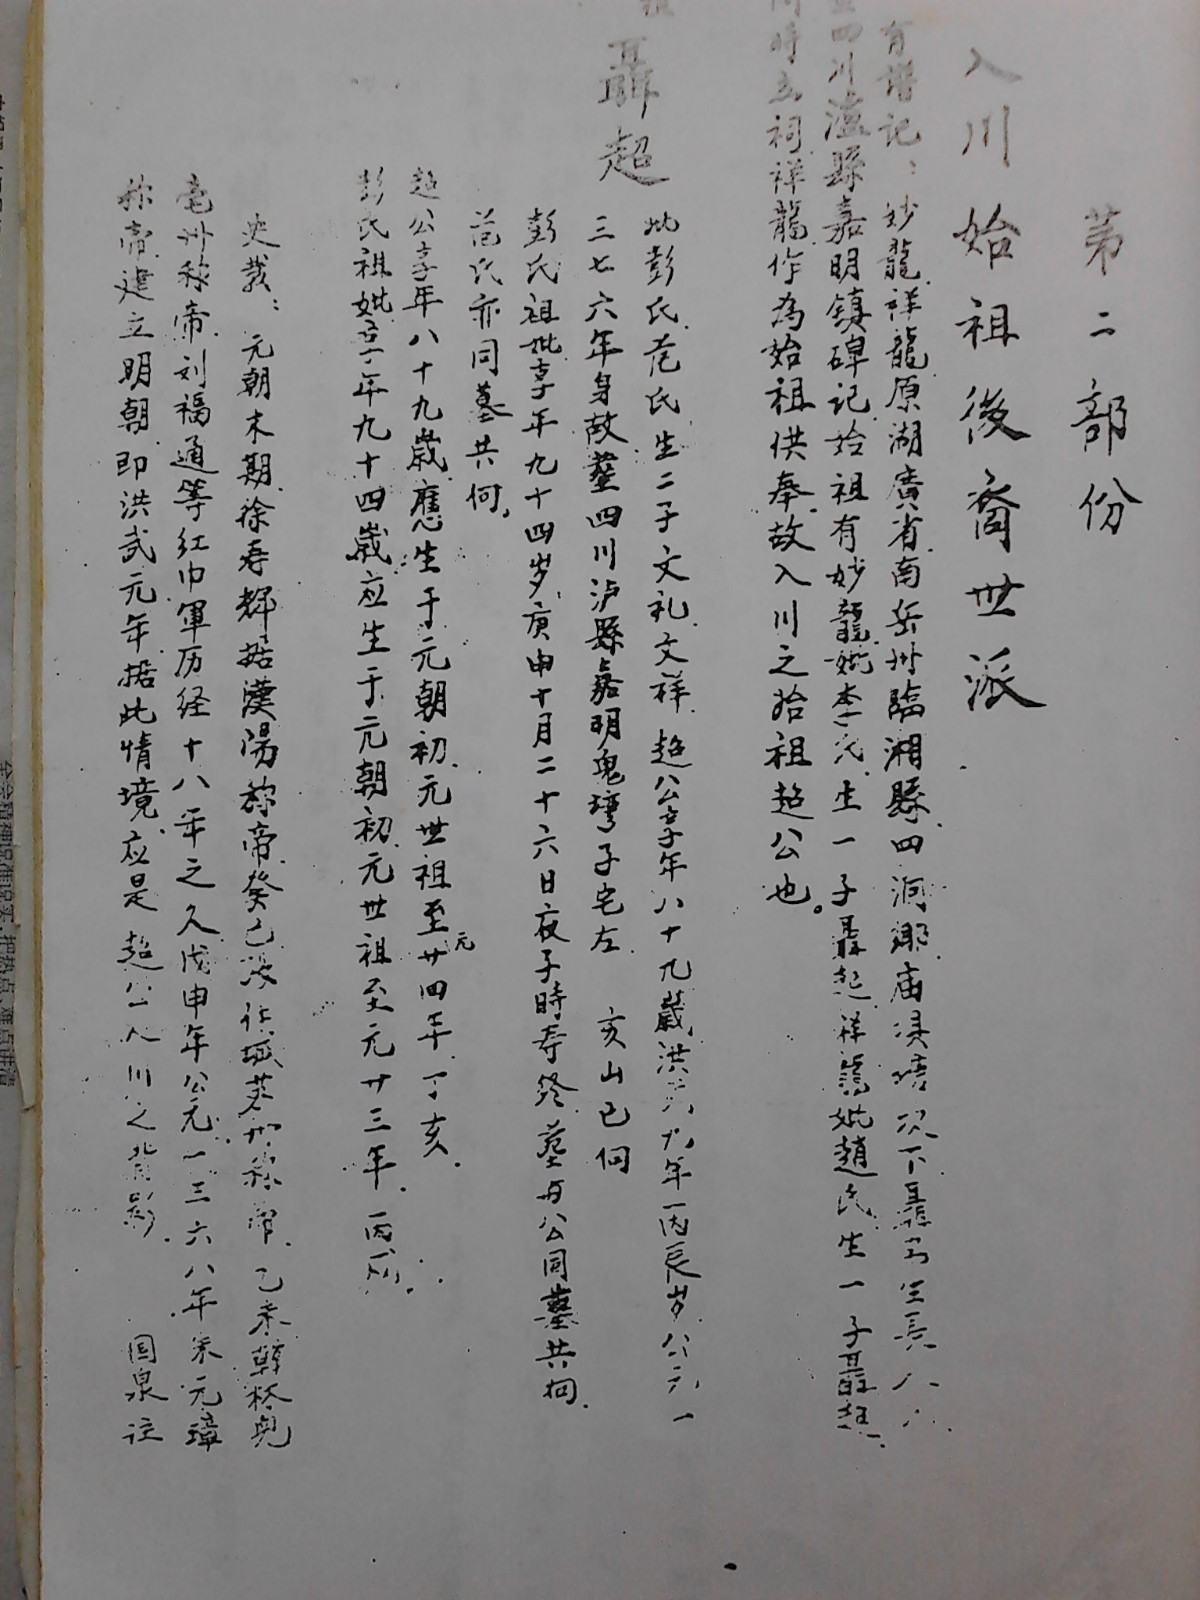 第二部份
入川始祖後裔世派
有譜記：妙龍祥龍原湖廣省南岳州臨湘縣四洞鄉庙
四川瀘縣嘉明鎮碑記始祖有妙龍妣李氏生一子聶起祥龍妣趙氏生一子聶超
時立祠祥龍作為始祖供奉故入川之始祖超公也。
聶超
妣彭氏范氏生二子文礼文祥 超公享年八十九歲洪武九年丙辰岁公元一
三七六年身故葬四川泸縣嘉明鬼彎子宅左 亥山巳向
彭氏祖妣享年九十四岁庚申十月二十六日夜子時寿终墓与公同墓共向.
范氏亦同墓共向。
超公享年八十九歲應生于元朝初元世祖至元廿四年丁亥.
彭氏祖妣享年九十四歲应生于元朝初元世祖至元廿三年.丙戌.
史載：元朝末期徐寿辉据漢陽称帝.癸巳 称帝.乙未韓林兒
亳州称帝.刘福通等红巾軍历经十八年之久戊申年公元一三六八年朱元璋
称帝.建立明朝.即洪武元年.据此情境.应是超公入川之背影. 国泉注